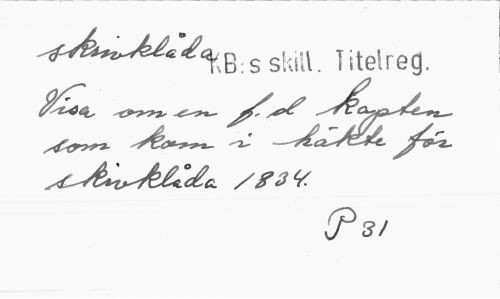 skrivklåda KB:s skill. Titelreg.
Visa om en f.d kapten
som kom i häkte för
skrivklåda 1834.
P 31